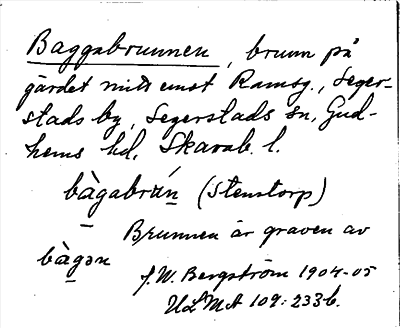 Baggabrunnen, brunn på
gärdet mitt emot Ramsg., Seger-
stads by, Segerstads sn, Gud-
hems hd, Skarab. l.
bàgabrún (Stenstorp)
Brunnen är graven av
bàgən
J. W. Bergström 1904-05
ULMA 109:233b.